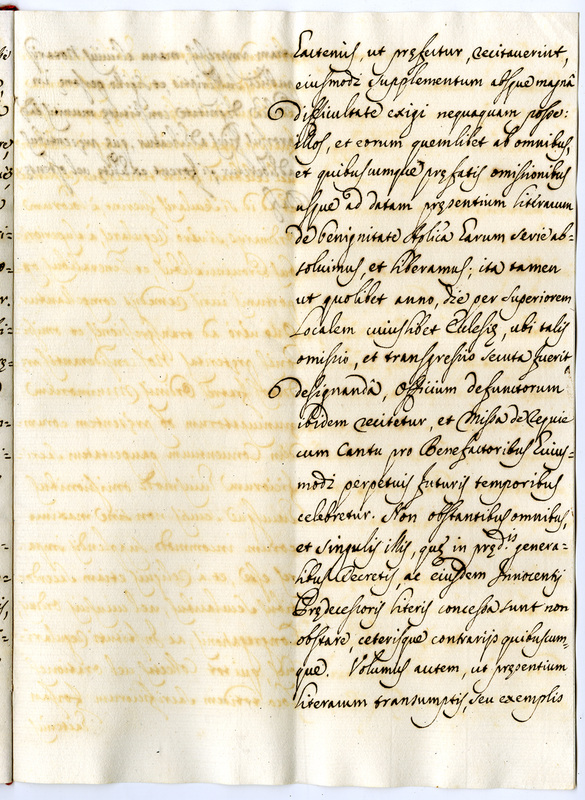 hactenus, ut pręfertur, recitaverint,
eiusmodi supplementum absque magnâ
difficultate exigi nequaquam posse:
illos, et eorum quemlibet ab omnibus,
et quibuscumque pręfatis omissionibus
usque ad datam pręsentium literarum
de benignitate Aplica harum serie ab-
solvimus, et liberamus; ita tamen
ut quolibet anno, die per Superiorem
localem cuiuslibet Ecclesię, ubi talis
omissio, et transgressio secuta fuerit
designandâ, Officium defunctorum
ibidem recitetur, et Missa de Requie
cum Cantu pro Benefactoribus huius-
modi perpetuis futuris temporibus
celebretur. Non obstantibus omnibus,
et singulis illis, quę in pręd.is genera-
libus Decretis, ac eiusdem Innocentij
Prędecessoris literis concessa sunt non
obstare, ceterisque contrarijs quibuscum-
que. Volumus autem, ut pręsentium
literarum transumptis, seu exemplis